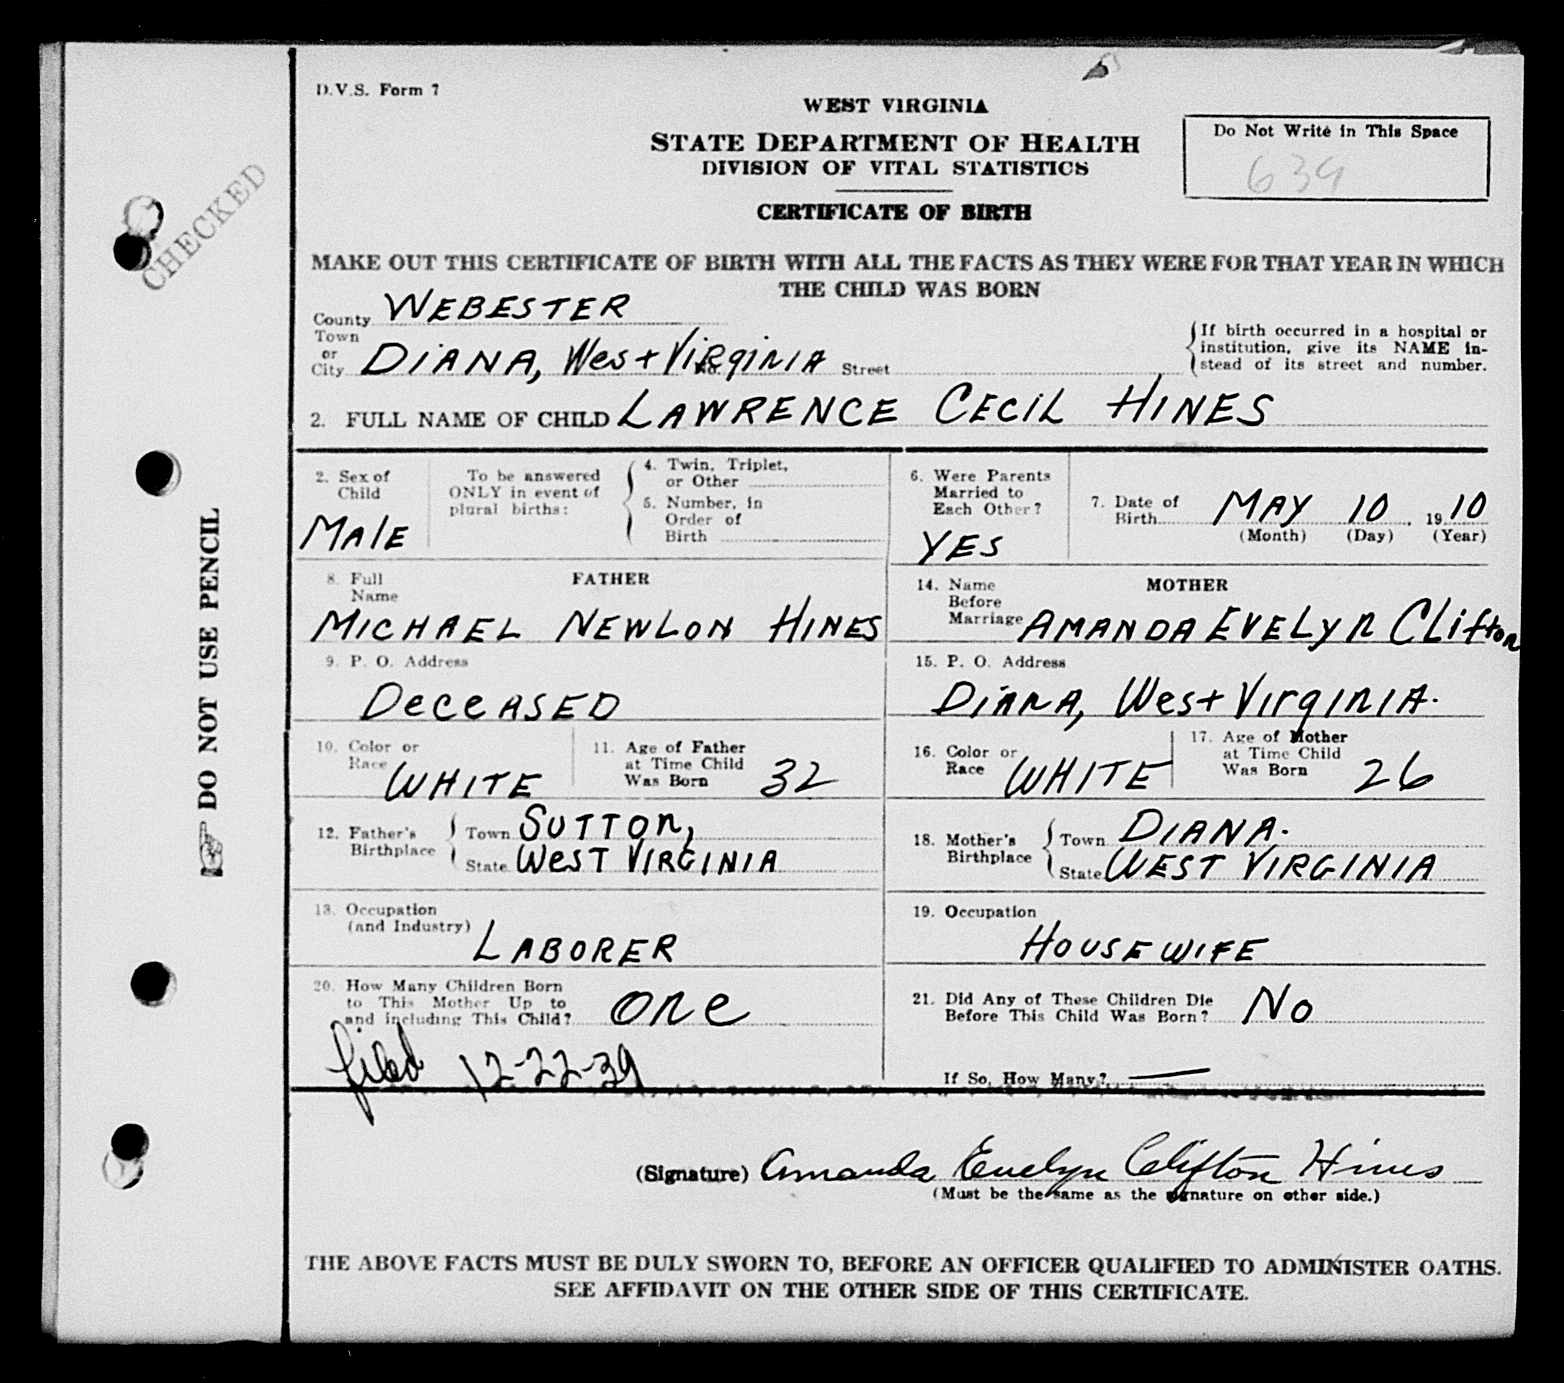 D.V.S. Form 7
WEST VIRGINIA
STATE DEPARTMENT OF HEALTH
DIVISION OF VITAL STATISTICS
CERTIFICATE OF BIRTH
Do Not Write in This Space
639
CHECKED
MAKE OUT THIS CERTIFICATE OF BIRTH WITH ALL THE FACTS AS THEY WERE FOR THAT YEAR IN WHICH
THE CHILD WAS BORN
County WEBESTER
Town
or
City DIANA, West VIRGINIA Street
If birth occurred in a hospital or
institution, give its NAME in-
stead of its street and number.
2. FULL NAME OF CHILD LAWRENCE CECIL HINES
2. Sex of
Child
MALE
To be answered
ONLY in event of
plural births:
4. Twin, Triplet,
or Other
5. Number, in
Order of
Birth
6. Were Parents
Married to
Each Other?
YES
7. Date of
Birth MAY 10, 1910
(Month) (Day) (Year)
8. Full
Name
FATHER
MICHAEL NEWLON HINES
14. Name
Before
Marriage
MOTHER
AMANDA EVELYN CLifton
9. P. O. Address
DeceASED
15. P. O. Address
DIANA, West VIrgINIA.
10. Color or
Race WHITE
11. Age of Father
at Time Child
Was Born 32
16. Color or
Race WHITE
17. Age of Mother
at Time Child
Was Born 26
12. Father's
Birthplace
Town SUTTON,
State WEST VIRGINIA
18. Mother's
Birthplace
Town DIANA.
State WEST VIRGINIA
13. Occupation
(and Industry) LABORER
19. Occupation
HOUSEWIFE
20. How Many Children Born
to This Mother Up to
and including This Child? One
21. Did Any of These Children Die
Before This Child Was Born? No
If So, How Many? —
filed 12-22-39
(Signature) Amanda Evelyn Clifton Hines
(Must be the same as the signature on other side.)
THE ABOVE FACTS MUST BE DULY SWORN TO, BEFORE AN OFFICER QUALIFIED TO ADMINISTER OATHS.
SEE AFFIDAVIT ON THE OTHER SIDE OF THIS CERTIFICATE.
DO NOT USE PENCIL